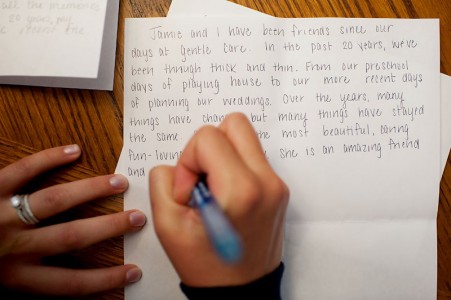 all the memories
20 years, my
Jamie and I have been friends since our
days at gentle care. In the past 20 years, we've
been through thick and thin. From our preschool
days of playing house to our more recent days
of planning our weddings. Over the years, many
things have chang but many things have stayed
the same the most beautiful, caring
fun-lovin she is an amazing friend
and